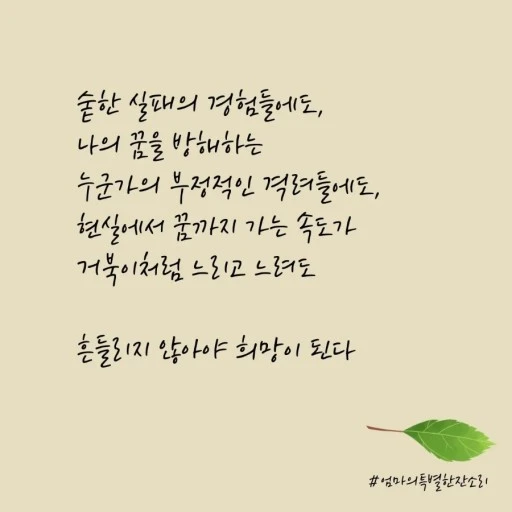 숱한 실패의 경험들에도,
나의 꿈을 방해하는
누군가의 부정적인 격려들에도,
현실에서 꿈까지 가는 속도가
거북이처럼 느리고 느려도
흔들리지 않아야 희망이 된다
#엄마의특별한잔소리